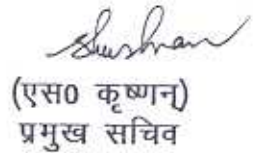 (एस0 कृष्णन)
प्रमुख सचिव